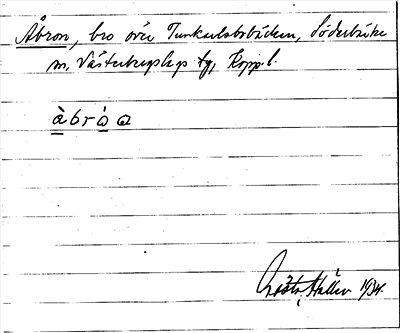 Åbron, bro över Turkarlsbobäcken, Söderbärke
m, Västerbergslags tg, Kopp. l.
àbròa
Gösta Hallin 1934.